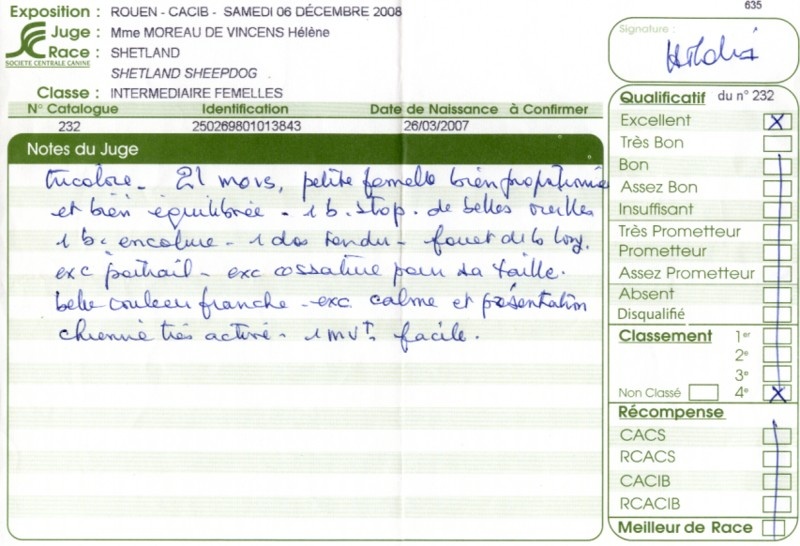 635
Exposition : ROUEN - CACIB - SAMEDI 06 DÉCEMBRE 2008
Juge : Mme MOREAU DE VINCENS Hélène
Race : SHETLAND
SOCIETE CENTRALE CANINE
SHETLAND SHEEPDOG
Classe : INTERMEDIAIRE FEMELLES
N° Catalogue Identification Date de Naissance à Confirmer
232 250269801013843 26/03/2007
Notes du Juge
tricolore - 21 mois, petite femelle bien proportionnée
et bien équilibrée - 1 b. stop. de belles oreilles
1 b. encolure - 1 dos tendu - fouet de b. long.
exc poitrail - exc ossature pour sa taille.
belle couleur franche - exc. calme et présentation
chienne très active - 1 mvt. facile.
Signature :
Qualificatif du n° 232
Excellent X
Très Bon
Bon
Assez Bon
Insuffisant
Très Prometteur
Prometteur
Assez Prometteur
Absent
Disqualifié
Classement 1er
2e
3e
Non Classé 4e X
Récompense
CACS
RCACS
CACIB
RCACIB
Meilleur de Race